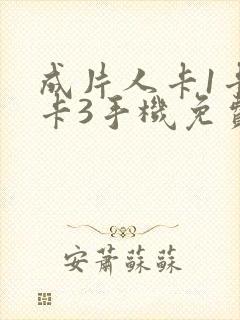 成片人卡1卡
卡3手機免費
安蕭蘇蘇